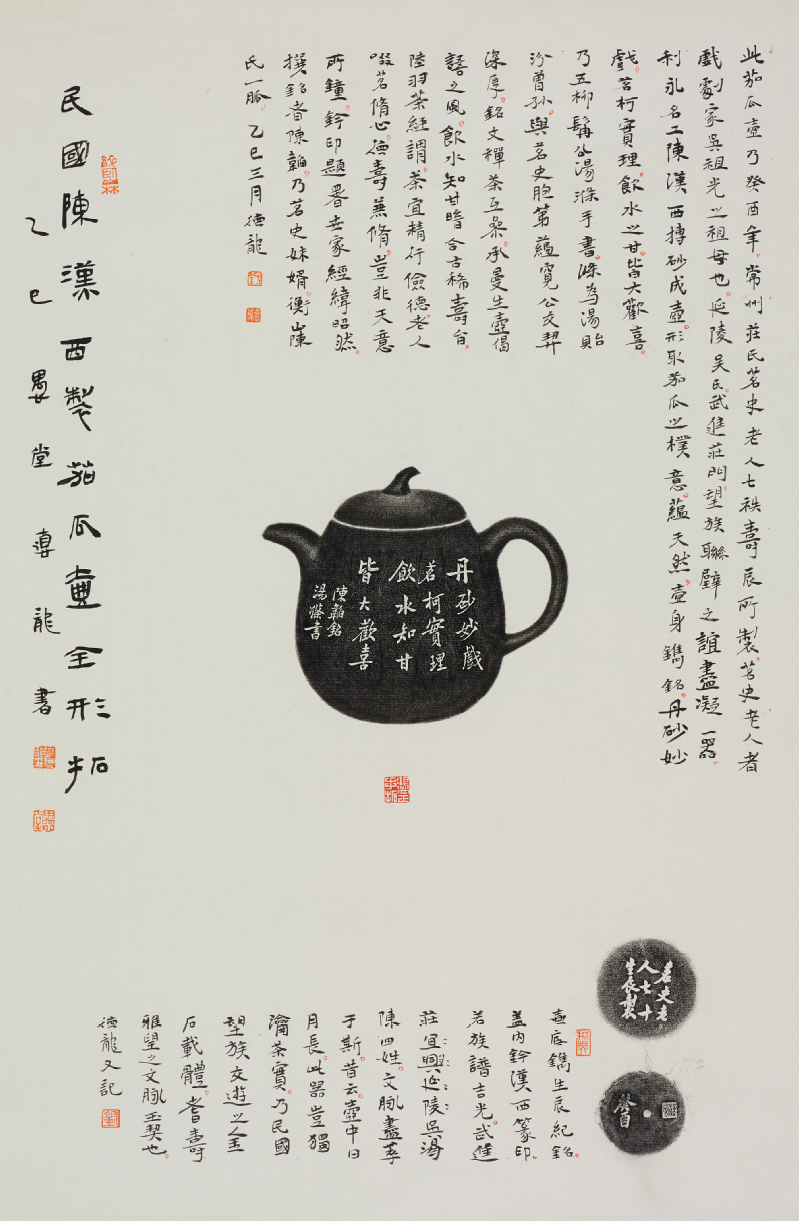 此茄瓜壺乃癸酉年常州莊氏茗史老人七秩壽辰所製茗史老人者
戲劇家吳祖光之祖母也延陵吳氏武進莊門望族聯璧之誼盡凝一器
利永名工陳漢西摶砂成壺形取茄瓜之樸意蘊天然壺身鐫銘丹砂妙
戲茗柯實理飲水之甘皆大歡喜
乃五柳髯公湯滌手書滌為湯貽
汾曾孫與茗史胞弟蘊寬公交契
深厚銘文禪茶互參承曼生壺偈
語之風飲水知甘暗合古稀壽旨
陸羽茶經謂茶宜精行儉德老人
啜茗脩心德壽兼脩豈非天意
所鐘鈐印題署世家經緯昭然
撰銘者陳韜乃茗史妹婿衡山陳
氏一脈乙巳三月德龍
民國陳漢西製茄瓜壺全形拓
乙巳 堂 德龍書
丹砂妙戲
茗柯實理
飲水知甘
皆大歡喜
陳韜銘
湯滌書
茗史老
人七十
生辰製
壺底鐫生辰紀銘
蓋內鈐漢西篆印
若族譜吉光武進
莊宜興延陵吳湯
陳四姓文脈盡萃
于斯昔云壺中日
月長此器豈獨
瀹茶實乃民國
望族交遊之金
石載體耆壽
雅望之文脈玉契也
德龍又記